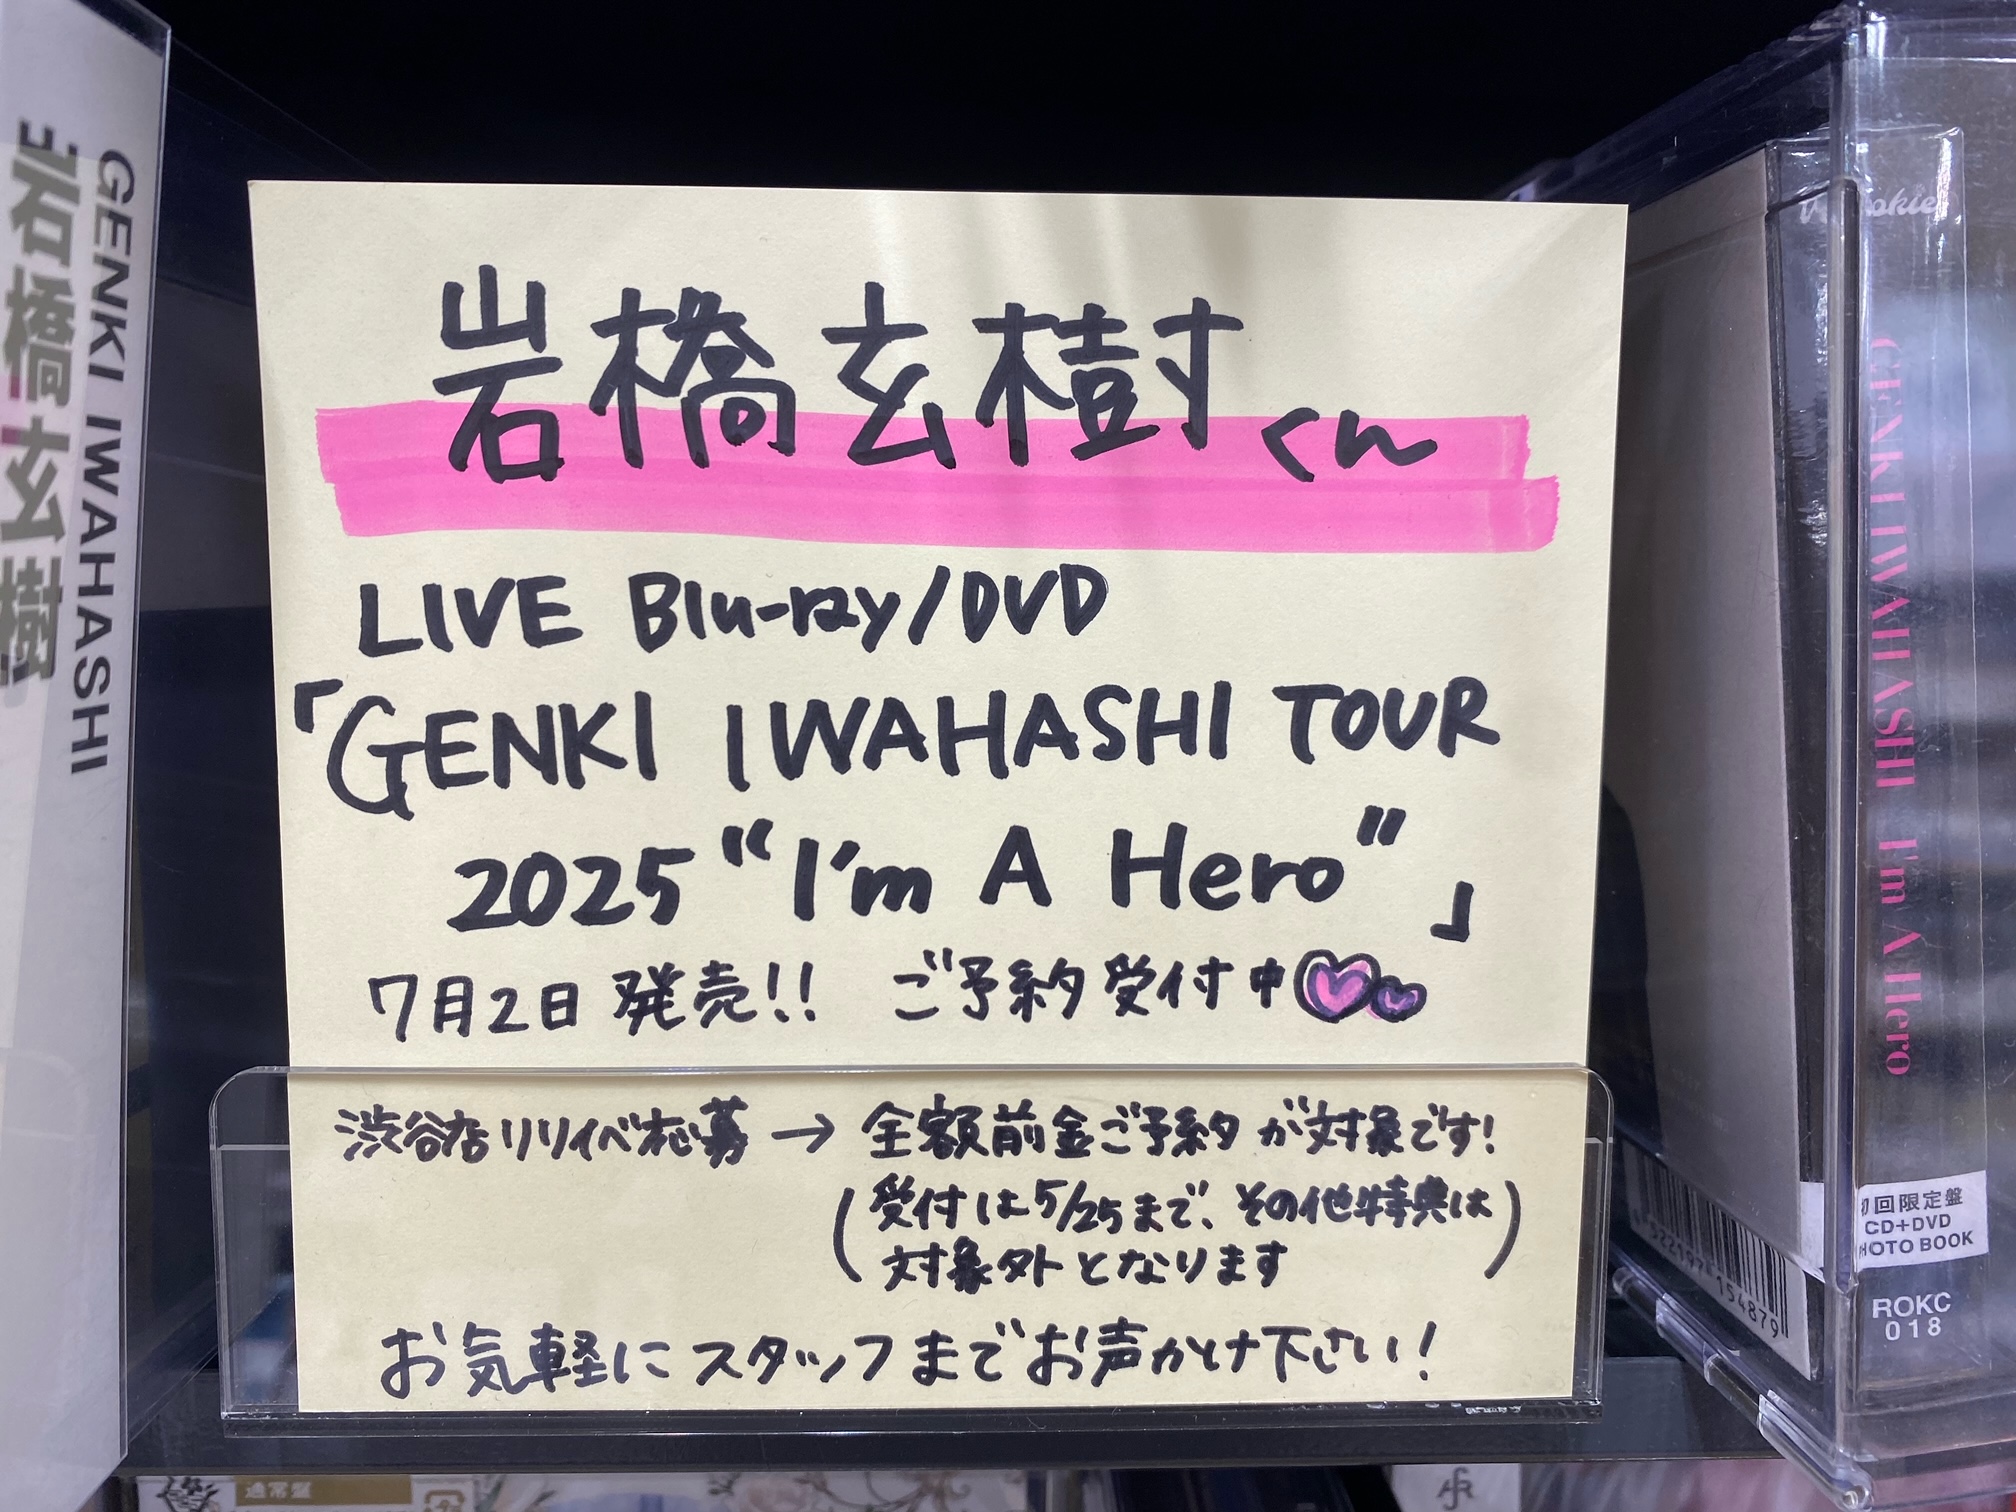 岩橋玄樹
GENKI IWAHASHI
岩橋玄樹くん
LIVE Blu-ray/DVD
「GENKI IWAHASHI TOUR
2025 “I'm A Hero”」
7月2日発売!! ご予約受付中
渋谷店リリイベ応募→全額前金ご予約が対象です!
(受付は5/25まで、その他特典は
対象外となります)
お気軽にスタッフまでお声かけ下さい!
GENKI IWAHASHI I'm A Hero
初回限定盤
CD+DVD
PHOTO BOOK
ROKC
018
通常盤